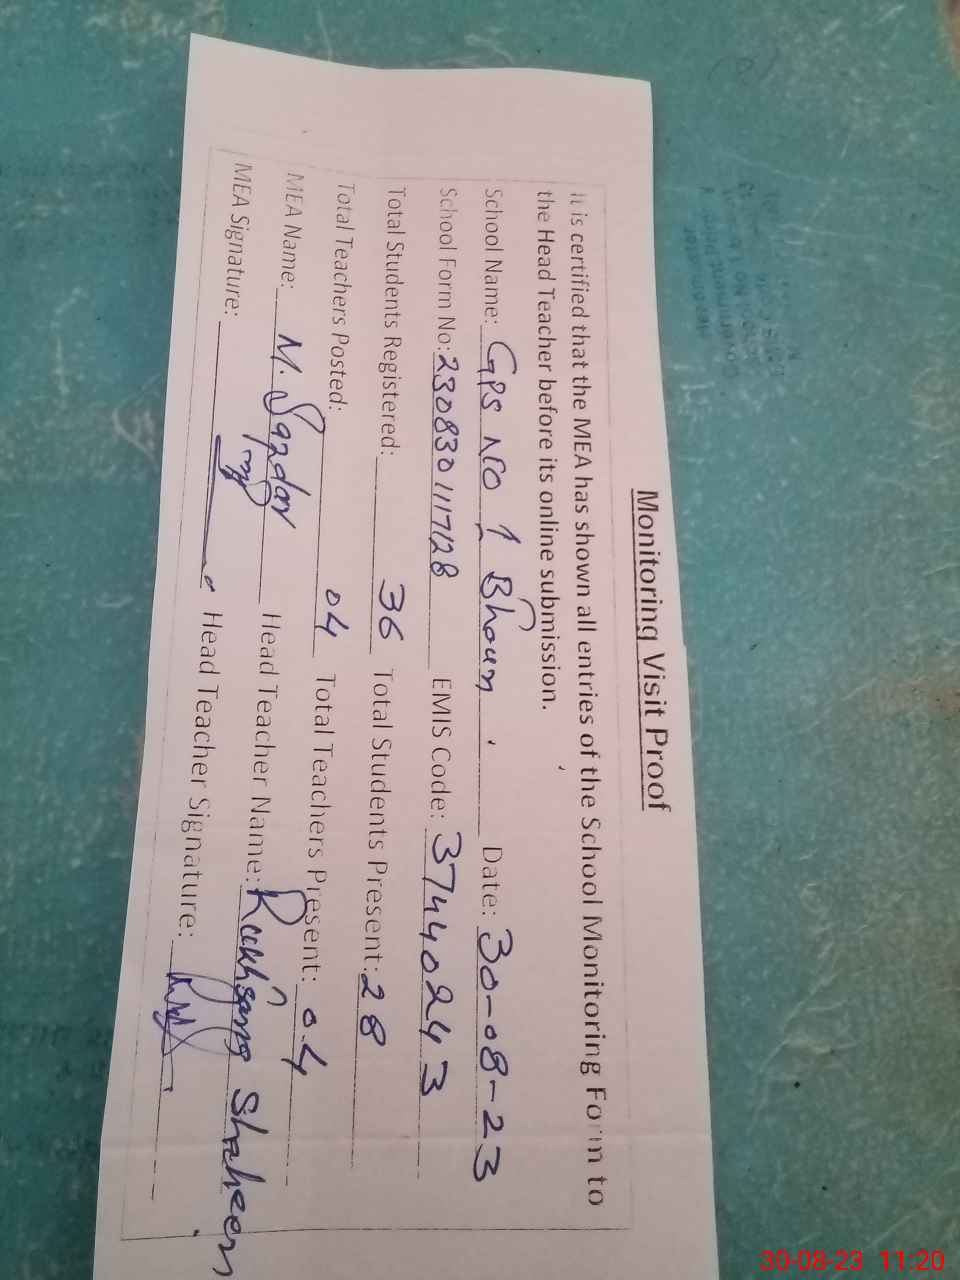 Monitoring Visit Proof
It is certified that the MEA has shown all entries of the School Monitoring Form to
the Head Teacher before its online submission.
School Name: GPS No 1 Bhoun. Date: 30-08-23
School Form No: 2308301117128 EMIS Code: 37440243
Total Students Registered: 36 Total Students Present: 28
Total Teachers Posted: 04 Total Teachers Present: 04
MEA Name: M. Safdar Head Teacher Name: Rukhsana Shaheen
MEA Signature: Head Teacher Signature:
30-08-23 11:20